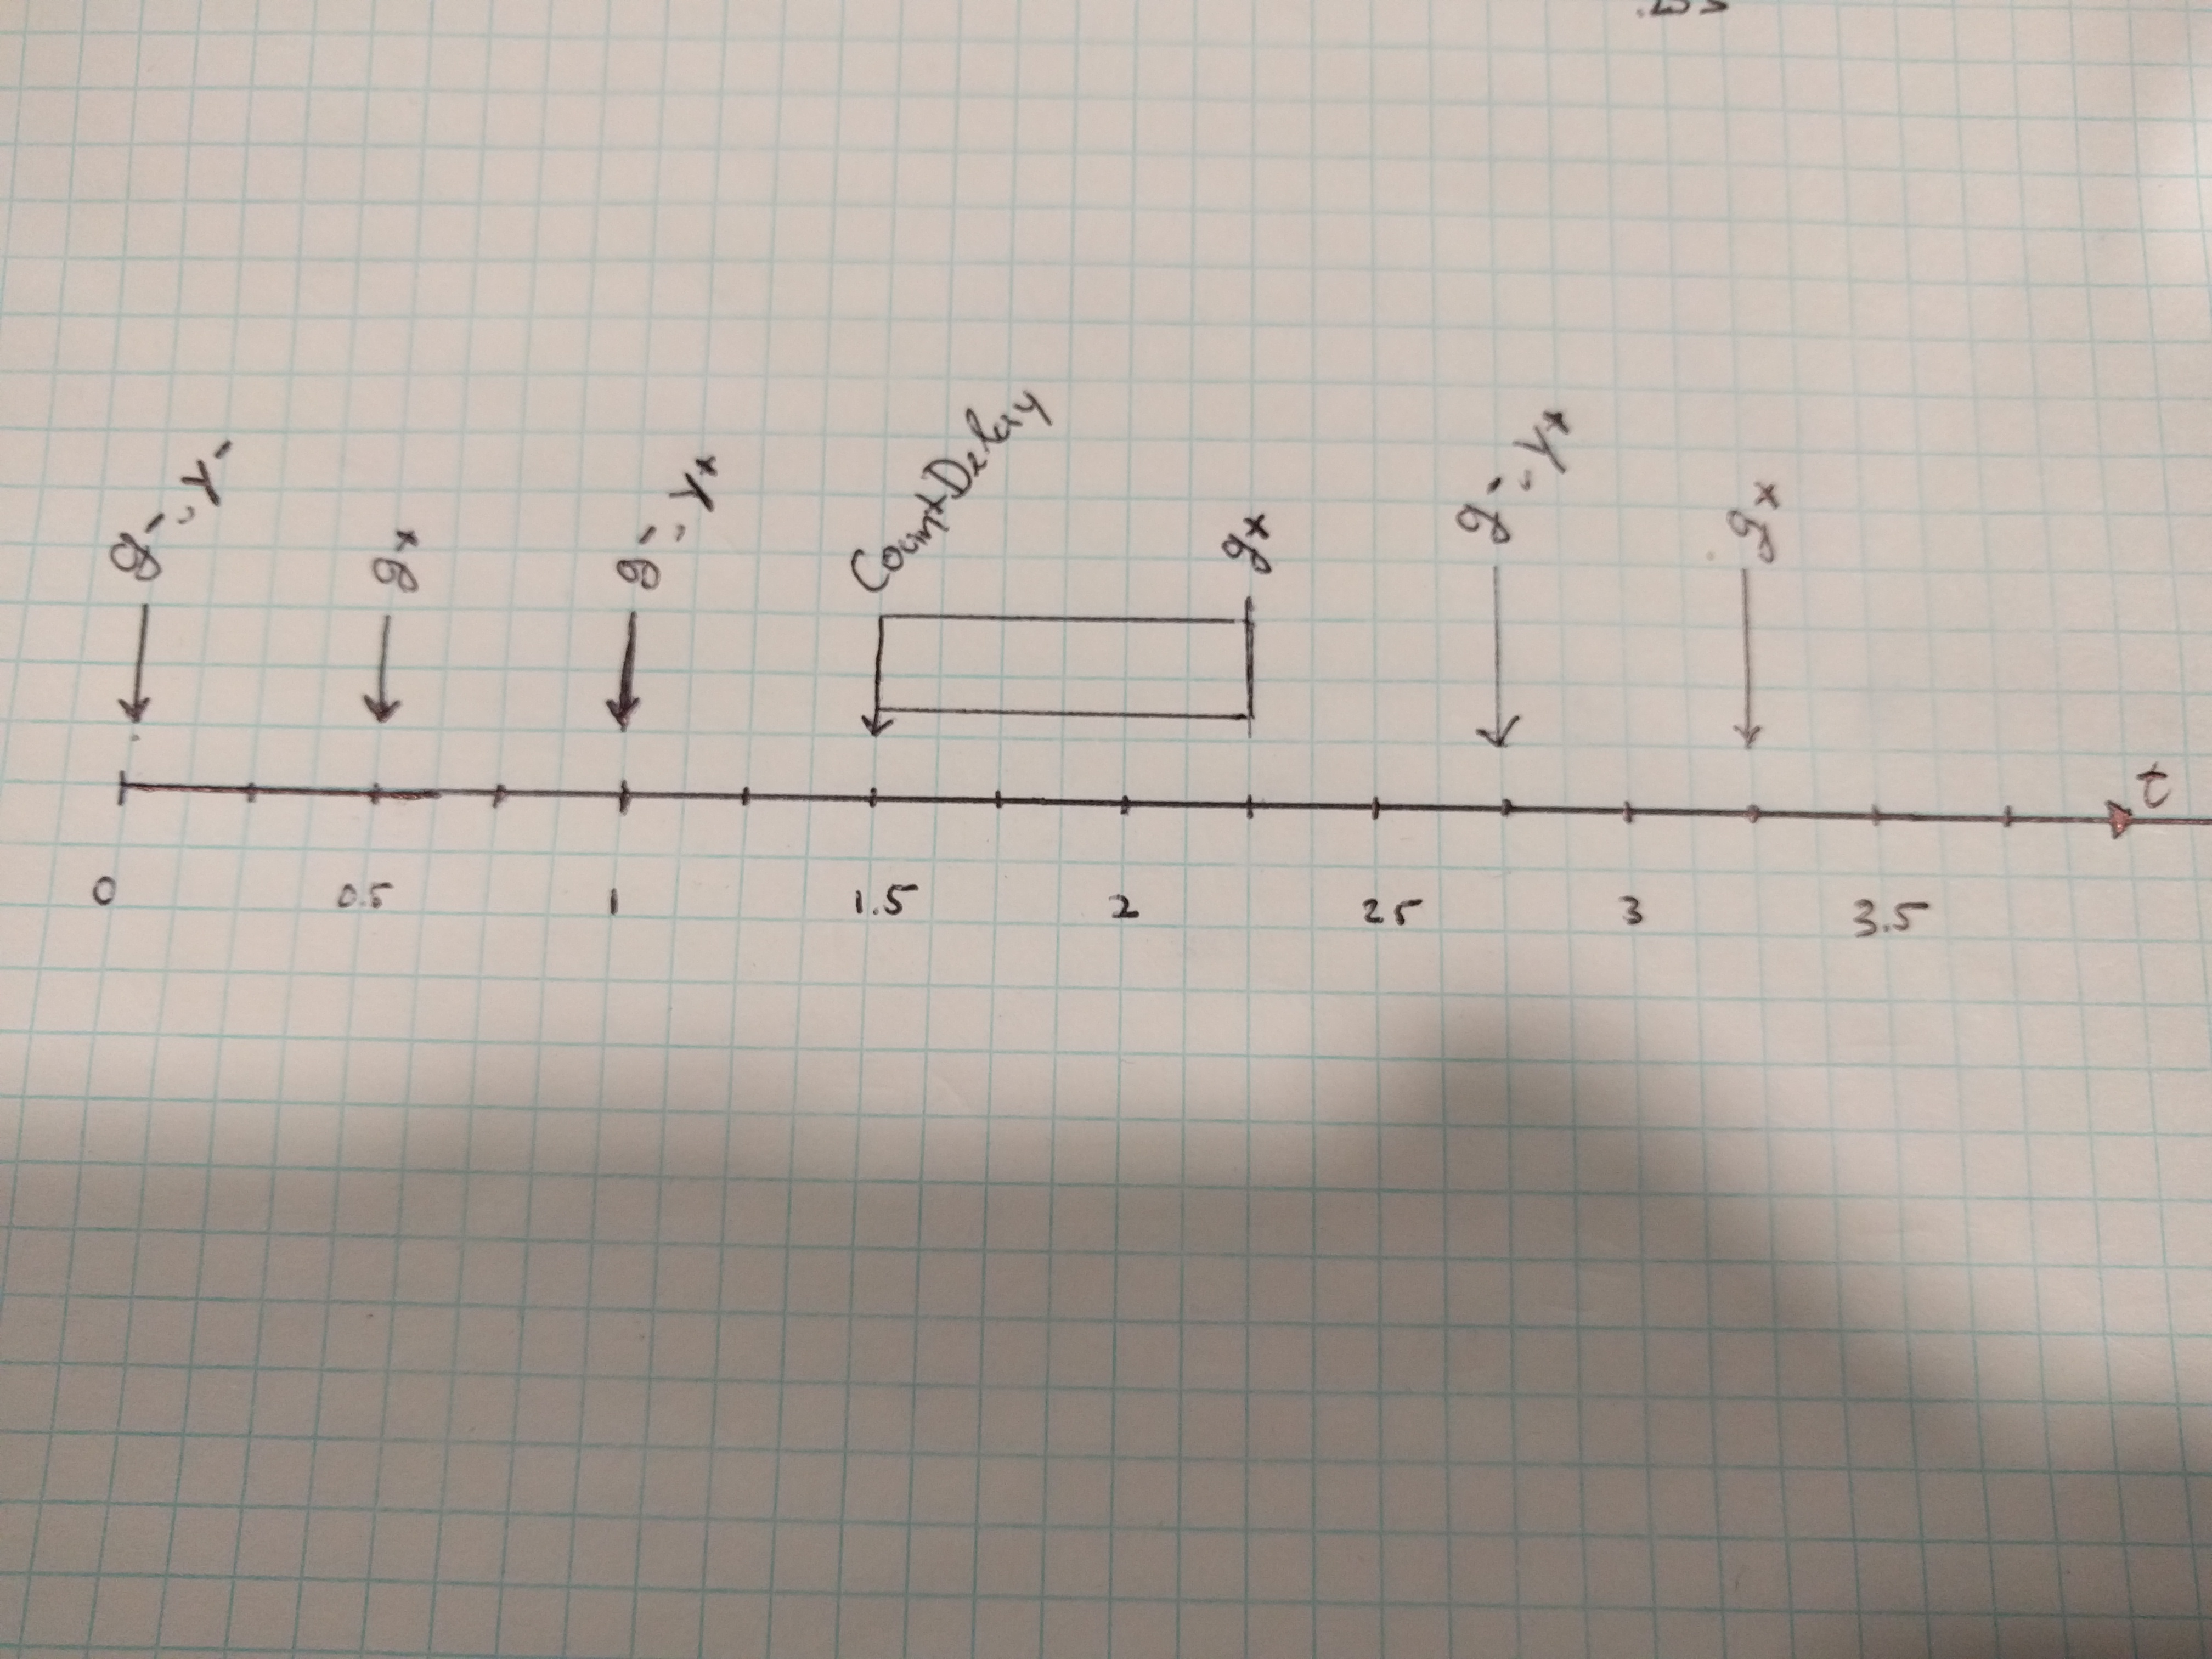 g-, y-
g+
g-, y+
Count Delay
g+
g-, y+
g+
t
0 0.5 1 1.5 2 25 3 3.5